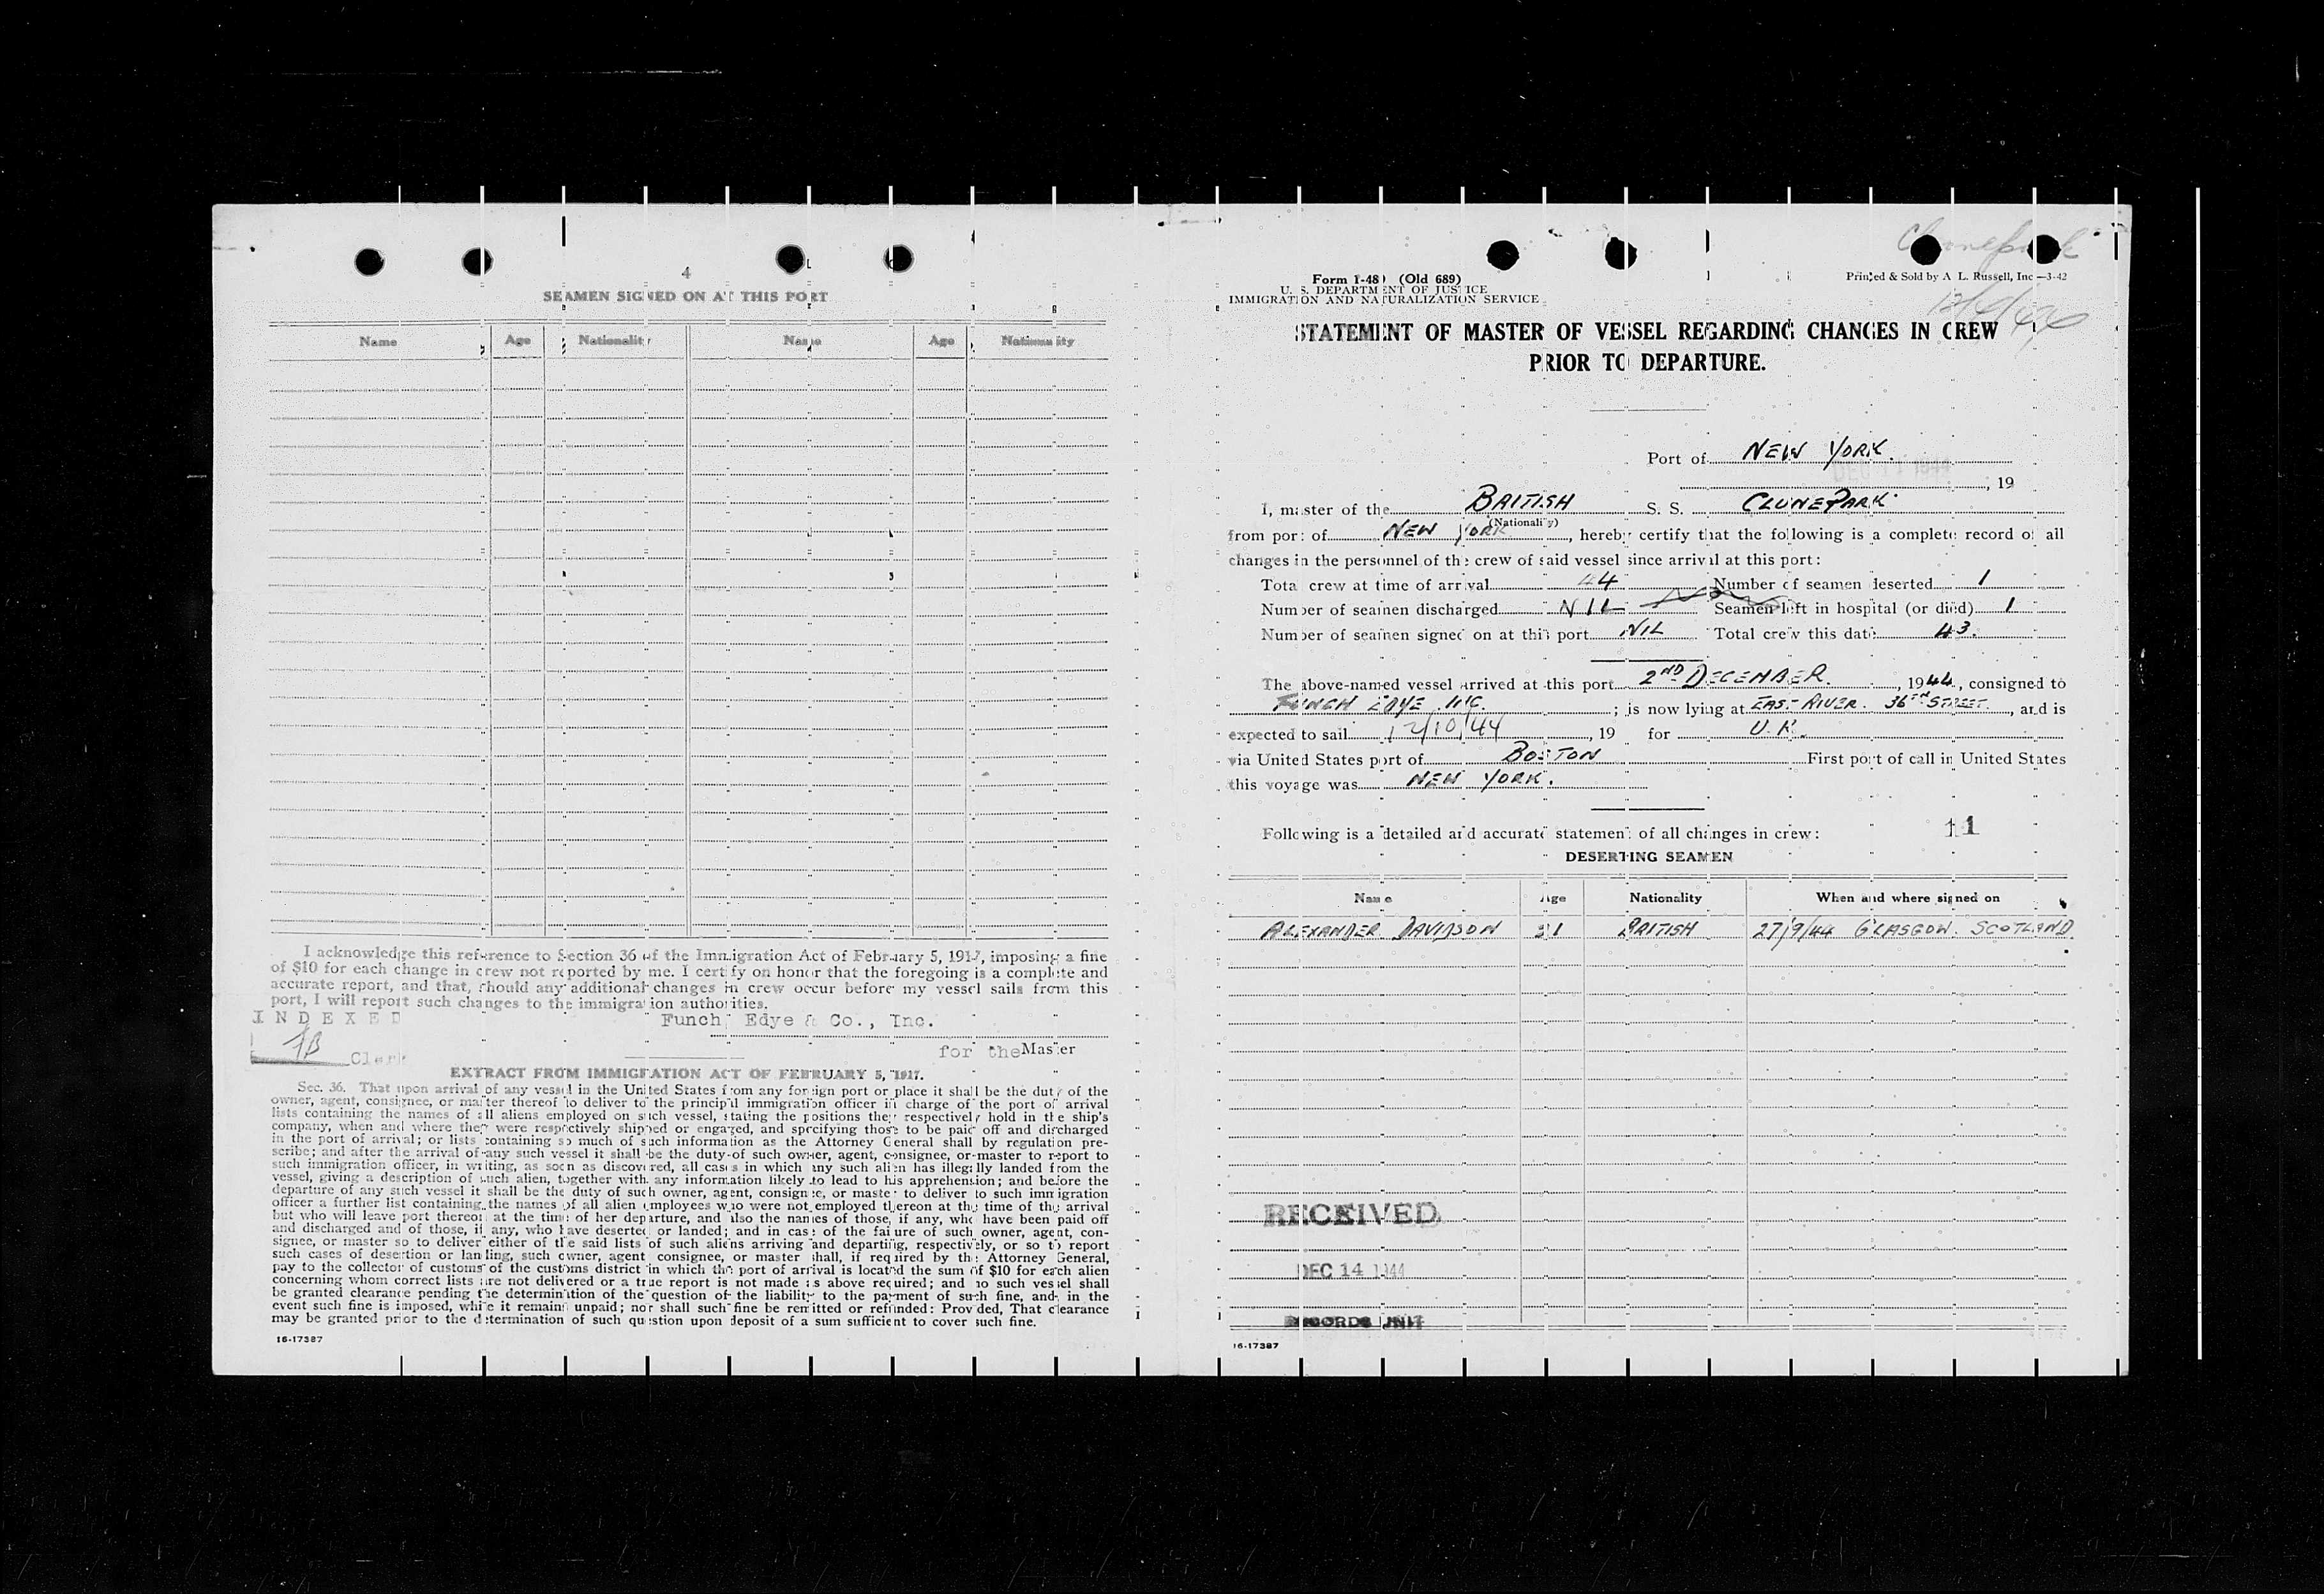 4
SEAMEN SIGNED ON AT THIS PORT
Name Age Nationality Name Age Nationality
I acknowledge this reference to Section 36 of the Immigration Act of February 5, 1917, imposing a fine
of $10 for each change in crew not reported by me. I certify on honor that the foregoing is a complete and
accurate report, and that, should any additional changes in crew occur before my vessel sails from this
port, I will report such changes to the immigration authorities.
INDEXED
Funch, Edye & Co., Inc.
Clerk
for the Master
EXTRACT FROM IMMIGRATION ACT OF FEBRUARY 5, 1917.
Sec. 36. That upon arrival of any vessel in the United States from any foreign port or place it shall be the duty of the
owner, agent, consignee, or master thereof to deliver to the principal immigration officer in charge of the port of arrival
lists containing the names of all aliens employed on such vessel, stating the positions they respectively hold in the ship's
company, when and where they were respectively shipped or engaged, and specifying those to be paid off and discharged
in the port of arrival; or lists containing so much of such information as the Attorney General shall by regulation pre-
scribe; and after the arrival of any such vessel it shall be the duty of such owner, agent, consignee, or master to report to
such immigration officer, in writing, as soon as discovered, all cases in which any such alien has illegally landed from the
vessel, giving a description of such alien, together with any information likely to lead to his apprehension; and before the
departure of any such vessel it shall be the duty of such owner, agent, consignee, or master to deliver to such immigration
officer a further list containing the names of all alien employees who were not employed thereon at the time of the arrival
but who will leave port thereon at the time of her departure, and also the names of those, if any, who have been paid off
and discharged and of those, if any, who have deserted or landed; and in case of the failure of such owner, agent, con-
signee, or master so to deliver either of the said lists of such aliens arriving and departing, respectively, or so to report
such cases of desertion or landing, such owner, agent consignee, or master shall, if required by the Attorney General,
pay to the collector of customs of the customs district in which the port of arrival is located the sum of $10 for each alien
concerning whom correct lists are not delivered or a true report is not made as above required; and no such vessel shall
be granted clearance pending the determination of the question of the liability to the payment of such fine, and in the
event such fine is imposed, while it remains unpaid; nor shall such fine be remitted or refunded: Provided, That clearance
may be granted prior to the determination of such question upon deposit of a sum sufficient to cover such fine.
16-17387
Clunepark
Form I-489 (Old 689)
U. S. DEPARTMENT OF JUSTICE
IMMIGRATION AND NATURALIZATION SERVICE
Printed & Sold by A. L. Russell, Inc.—3-42
STATEMENT OF MASTER OF VESSEL REGARDING CHANGES IN CREW
PRIOR TO DEPARTURE.
Port of NEW YORK.
, 19
I, master of the BRITISH S. S. CLUNEPARK
(Nationality)
from port of NEW YORK, hereby certify that the following is a complete record of all
changes in the personnel of the crew of said vessel since arrival at this port:
Total crew at time of arrival 44 Number of seamen deserted 1
Number of seamen discharged NIL Seamen left in hospital (or died) 1
Number of seamen signed on at this port NIL Total crew this date 43.
The above-named vessel arrived at this port 2ND DECEMBER. , 1944, consigned to
FUNCH EDYE INC. ; is now lying at EAST RIVER. 36TH STREET, and is
expected to sail 12/10/44, 19 for U.K.
via United States port of BOSTON First port of call in United States
this voyage was NEW YORK.
Following is a detailed and accurate statement of all changes in crew: 11
DESERTING SEAMEN
Name Age Nationality When and where signed on
ALEXANDER DAVIDSON 31 BRITISH 27/9/44 GLASGOW. SCOTLAND.
RECEIVED
DEC 14 1944
RECORDS UNIT
16-17387